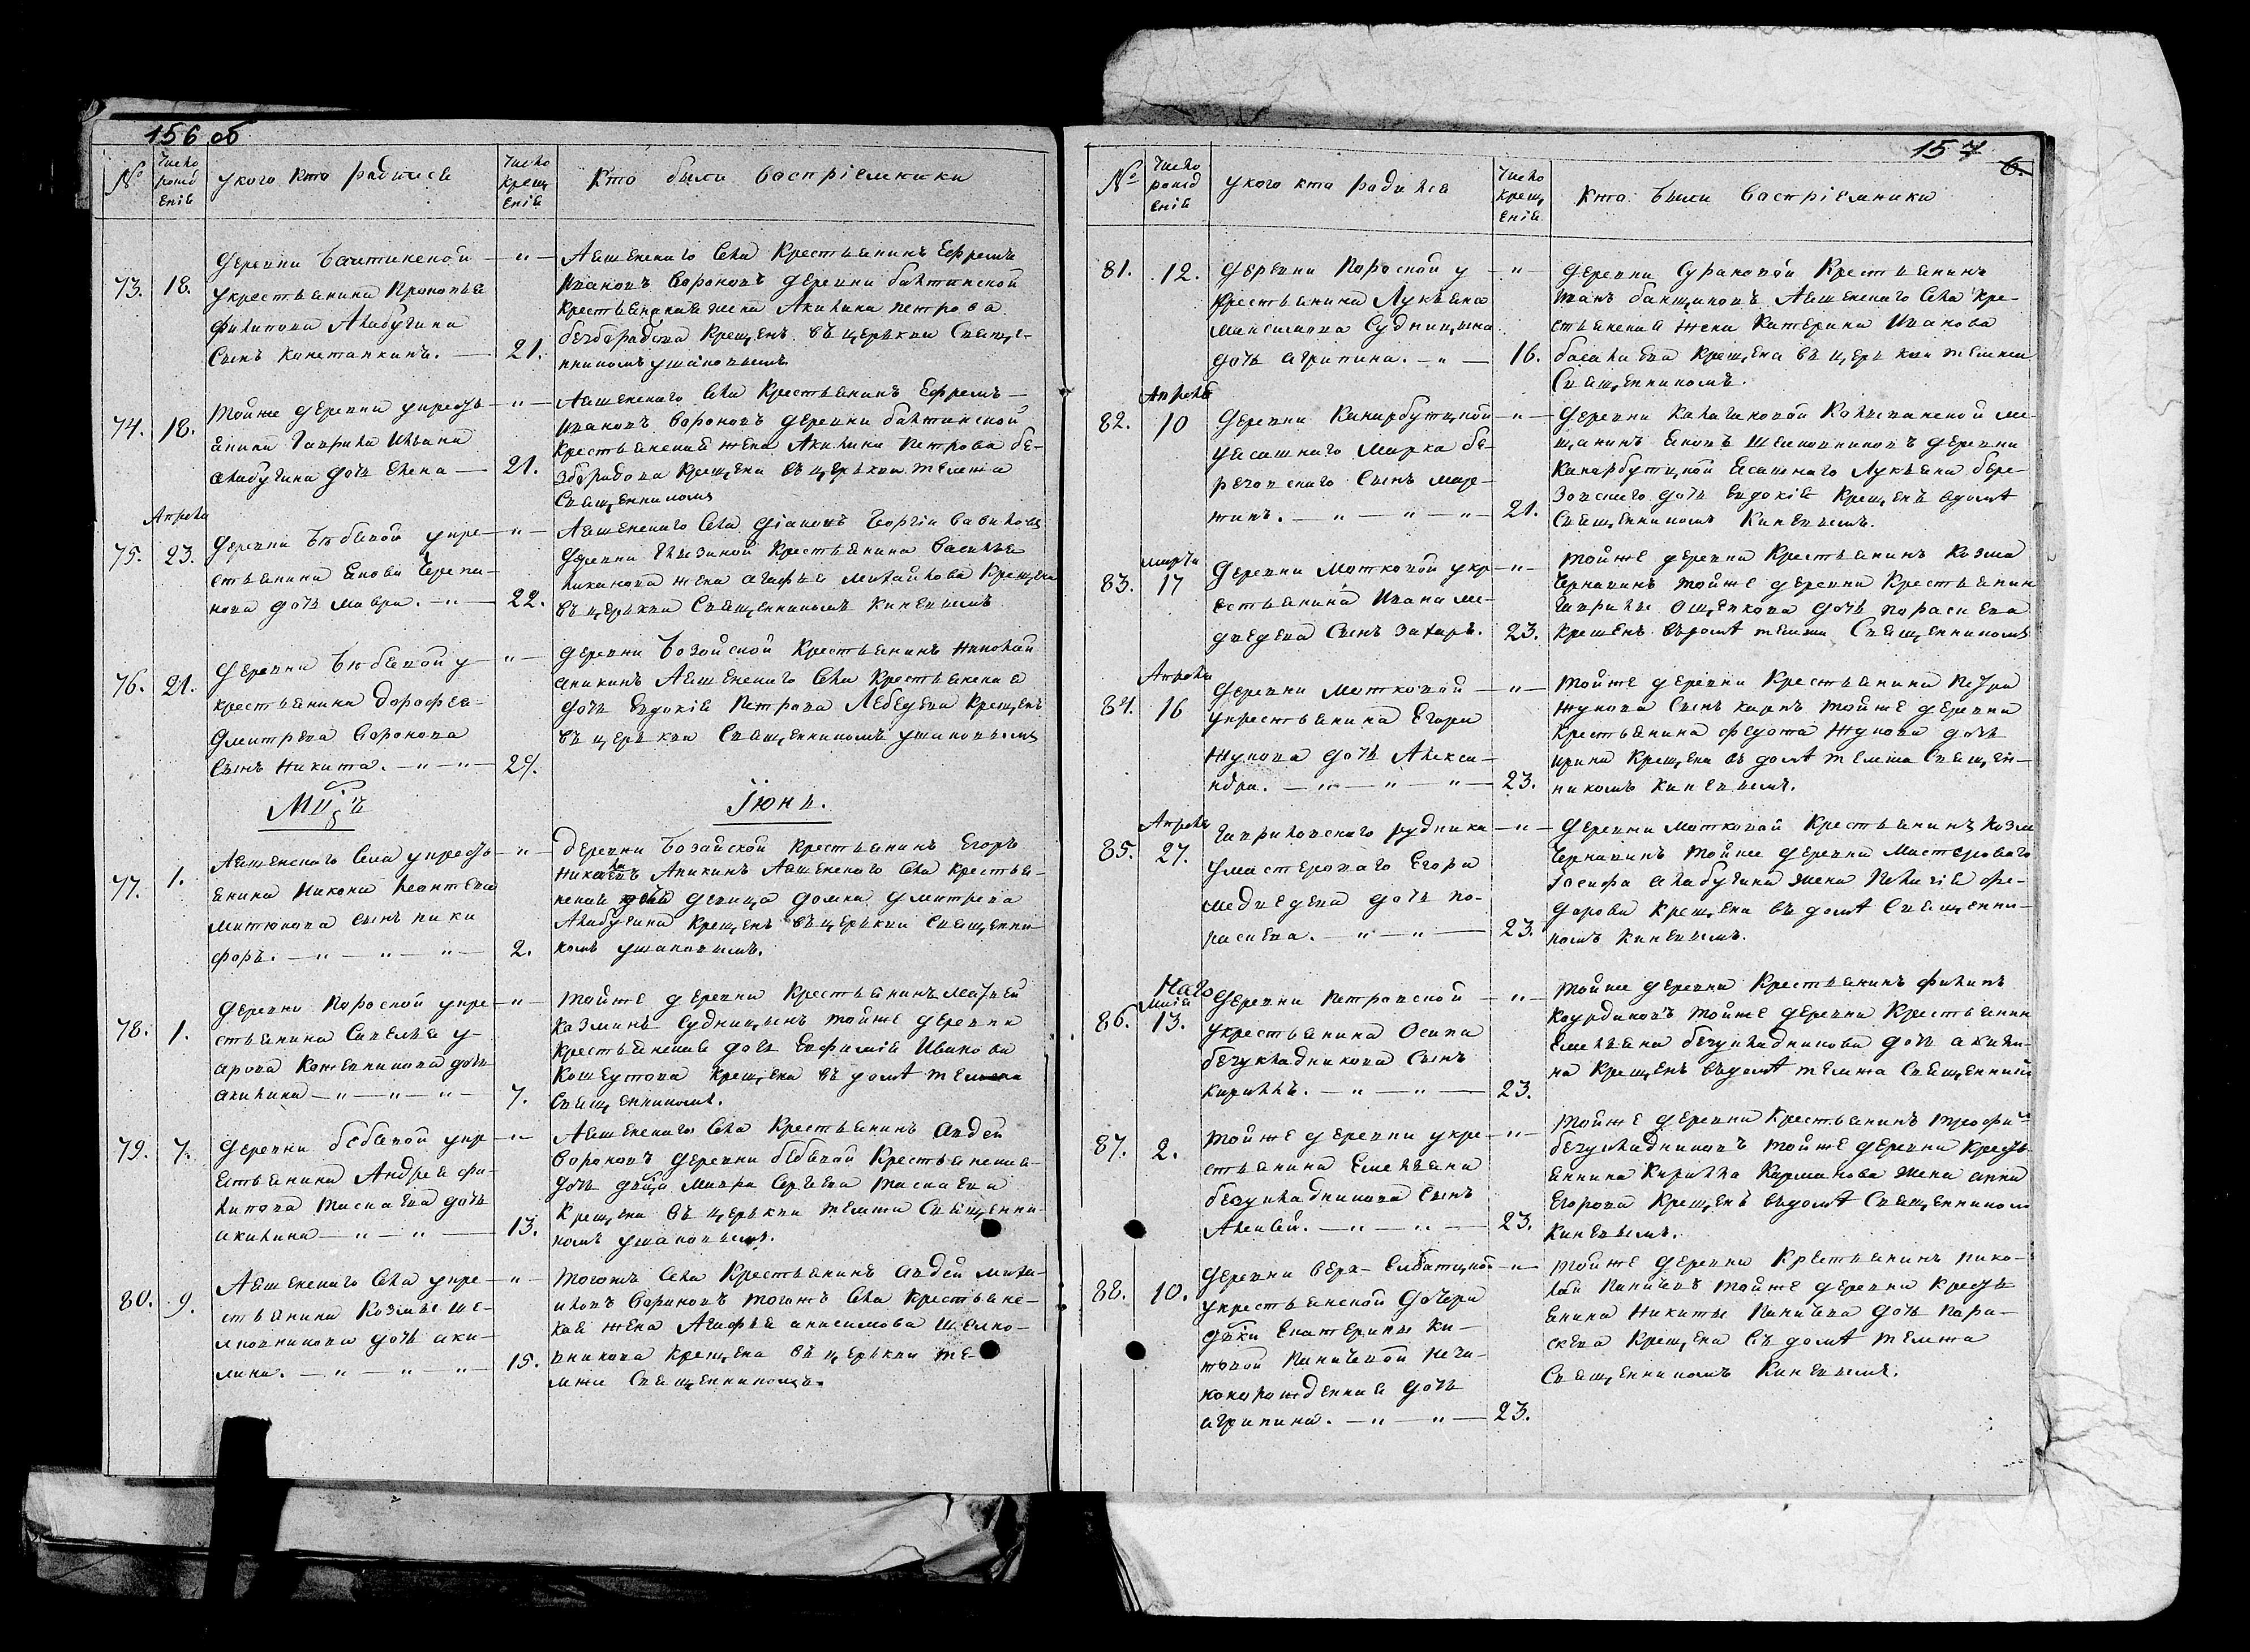 156 об
№
Число рожд ениѣ
у кого кто родился
Число крещ еніѣ
Кто были воспріемники
73. 18.
Деревни Бахтинской — „ —
у крестьянина Прокопья
Филипова Алабугина
Сынъ Констанкинъ. — 21.
Аешенскаго села Крестьянинъ Ефремъ
Ивановъ Вороновъ деревни бахтинской
крестьянская жена Акилина петрова
безбородова Крещенъ въ церькви Свяще-
нникомъ ушаковымъ
74. 18.
Тойже деревни у кресть- — „ —
янина Гаврила Ильина
алабугина дочь Елена — 21.
Аешенскаго села Крестьянинъ Ефремъ —
ивановъ вороновъ деревни бахтинской
крестьянская жена Акилина Петрова бе-
зборадова крещена въ церькви темже
Священникомъ
Апреля
75. 23.
Деревни Бѣбевой у кре- — „ —
стьянина Якова Черепа-
нова дочь мавра. — „ — 22.
Аешенскаго села діаконъ Георгіи вавиловъ
деревни Крестьянина Василья
жена агафья михайлова Крещена
въ церькви Священникомъ Киневымъ
76. 21.
Деревни Бѣбевой у — „ —
крестьянина Дорофея
Дмитрева воронова
Сынъ Никита. — „ — „ — 24.
Деревни Бозойской Крестьянинъ Николай
аникинъ Аешенскаго села Крестьянская
дочь Евдокія Петрова Лебедева Крещенъ
въ церькви Священникомъ ушаковымъ
Маiй
Iюнь.
77. 1.
Аешенскаго села у кресть- — „ —
янина Никона Леонтева
митюкова сынъ ники
форъ. — „ — „ — „ — 2.
деревни Бозайской крестьянинъ Егоръ
Аникинъ Аешенскаго села кресть-
девица домна дмитрева
Алабугина Крещенъ въ церькви Священни-
комъ ушаковымъ.
78. 1.
Деревни Поросной у кре- — „ —
стьянина Савелья у-
арова Кожевникова дочь
акилина — „ — „ — „ — 7.
Тойже деревни крестьянинъ Матвей
Казминъ Судницынъ тойже деревни
крестьянская дочь Евфимія Ивакова
Кошеутова крещена въ домѣ темже
Священникомъ.
79. 7.
Деревни бебевой у кре- — „ —
естьянина Андрея фи-
липова Таскаева дочь
акилина — „ — „ — 13.
Аешенскаго села Крестьянинъ Авдей
вороновъ деревни бебевой Крестьянская
дочь дѣвица мавра Сергеева таскаева
Крещена въ церькви темже Священни-
комъ ушаковымъ.
80. 9.
Аешенскаго села у кре- — „ —
стьянина Козмы ше-
лковникова дочь аки-
лина. — „ — „ — „ — 15.
Тогожъ села Крестьянинъ Авдей миха-
иловъ Вороновъ тогожъ села крестьянс-
кая жена Агафья анисимова шелко-
вникова Крещена въ церькви те-
мже Священникомъ.
157
6.
№
Число рожд еніѣ
у кого кто родился
Число крещ еніѣ
Кто были воспріемники
81. 12.
Деревни Поросной у — „ —
крестьянина Лукьяна
максимова Судницына
дочь агрипина. — „ — 16.
Деревни Сурановой Крестьянинъ
Иванъ банщиковъ Аешенскаго села кре-
стьянская жена Катерина Иванова
басалаева крещена въ церькви темже
Священникомъ.
Апрель
82. 10
Деревни Канарбутцкой — „ —
у ясашнаго марка бе-
резовскаго Сынъ мар-
тинъ. — „ — „ — „ — 21.
Деревни Калагановой Колыванской ме-
щанинъ Яковъ Шелковниковъ деревни
Канарбутцкой Ясашнаго Лукьяна бере-
зовскаго дочь Евдокія Крещенъ в домѣ
Священникомъ Киневымъ.
марта
83. 17
Деревни Мотковой у кр- — „ —
естьянина Ивана ме-
дведева Сынъ Захаръ. 23.
Тойже деревни Крестьянинъ Козма
Чернавинъ тойже деревни Крестьянин
Гаврилы Ощепкова дочь пораскева
крешенъ въ домѣ темже Священникомъ
Апреля
84. 16
Деревни Мотковой — „ —
у крестьянина Егора
Жукова дочь Алекса-
ндра. — „ — „ — „ — 23.
Тойже деревни Крестьянина Петра
жукова Сынъ карпъ тойже деревни
Крестьянина федота Жукова дочь
ирина Крещена въ домѣ темже Священ-
никомъ Киневымъ.
Апрель
85. 27.
Гавриловскаго рудника — „ —
у мастероваго Егора
медведева дочь по-
раскева. — „ — „ — 23.
Деревни Мотковой Крестьянинъ Козма
Чернавинъ тойже деревни Мастероваго
Іосифа алабугина жена Пелагія фе-
дорова крещена въ домѣ Священни-
комъ Киневымъ.
Маія
86. 13.
Деревни Петровской — „ —
у крестьянина Осипа
безукладникова Сынъ
кирилъ. — „ — „ — 23.
Тойже деревни Крестьянинъ филипъ
Коурдиковъ тойже деревни Крестьянин
Емельяна безукладникова дочь акили-
на Крещенъ въ домѣ темже Священник
87. 2.
Тойже деревни у кре- — „ —
стьянина Емельяна
безукладникова Сынъ
Алексей. — „ — „ — 23.
Тойже деревни Крестьянинъ трофи
безукладниковъ тойже деревни кресть-
янина Кирилла Карманова жена анна
Егорова Крещенъ въ домѣ Священником
Киневымъ.
88. 10.
Деревни верх- Ембатцкой — „ —
у крестьянской дочери
дѣвки Екатерины Ки-
товой Паничевой неза-
конорожденная дочь
агрипина. — „ — „ — 23.
Тойже деревни Крестьянинъ нико-
лай Паничевъ тойже деревни кресть
янина Никиты Паничева дочь пара-
скева Крещена въ домѣ темже
Священникомъ Киневымъ.